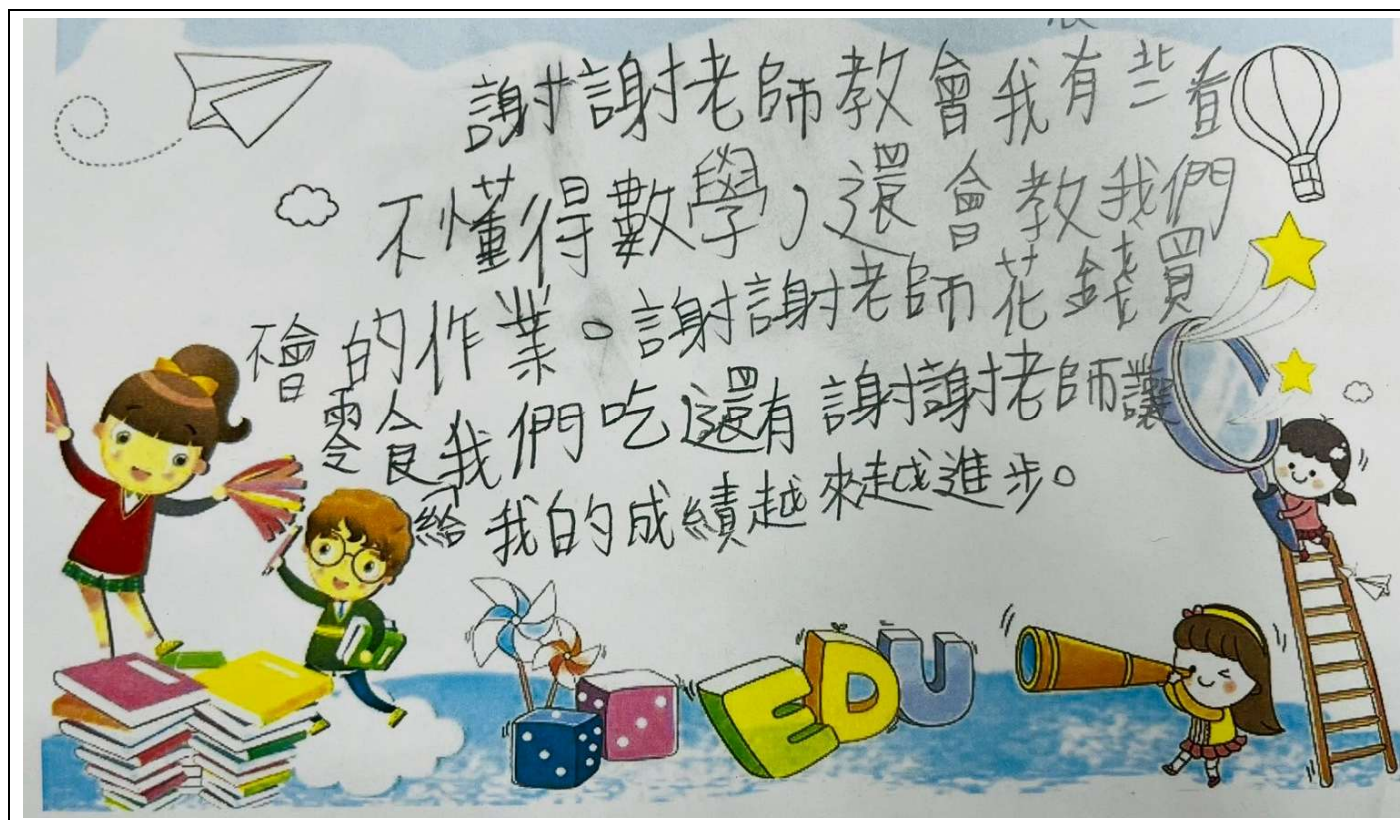 謝謝老師教會我有些看
不懂得數學，還會教我們
不會的作業。謝謝老師花錢買
零食我們吃，還有謝謝老師讓
給我的成績越來越進步。
EDU